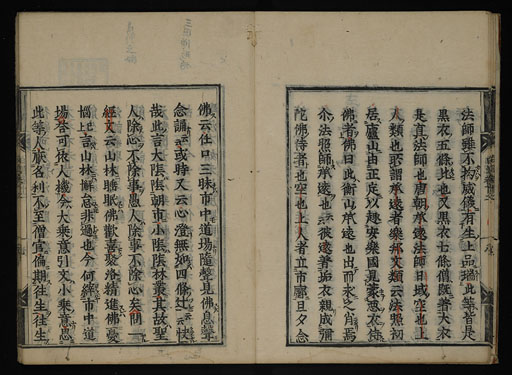 法師雖不拘威儀有生上品瑞此等皆是
黒衣五條比也又黒衣七條僧既著大衣
是直法師也唐朝承遠法師日域空也上
人類也所謂承遠者樂邦文類云法照初
居廬山由正定以趣安樂國見蒙惡衣侍
佛者佛曰此衡山承遠也出而求之肖焉
尒法照師承遠也云彼遠著垢衣親成彌
陀佛侍者也空也上人者立市鄽旦夕念
佛云住口三昧市中道場隨聲見佛息聲
念誦云或時又云心澄無如四條辻云快
哉此言大隱隱朝市小隱隱林叢其故聖
人除心不除事愚人除事不除心矣問一
經文云山林睡眠佛歡喜聚落精進佛憂
惱上言山林懈怠非過也今何經市中道
場答可依人機今大乘意引文小乘意思
此等人厭名利不至僧官偏期往生往生